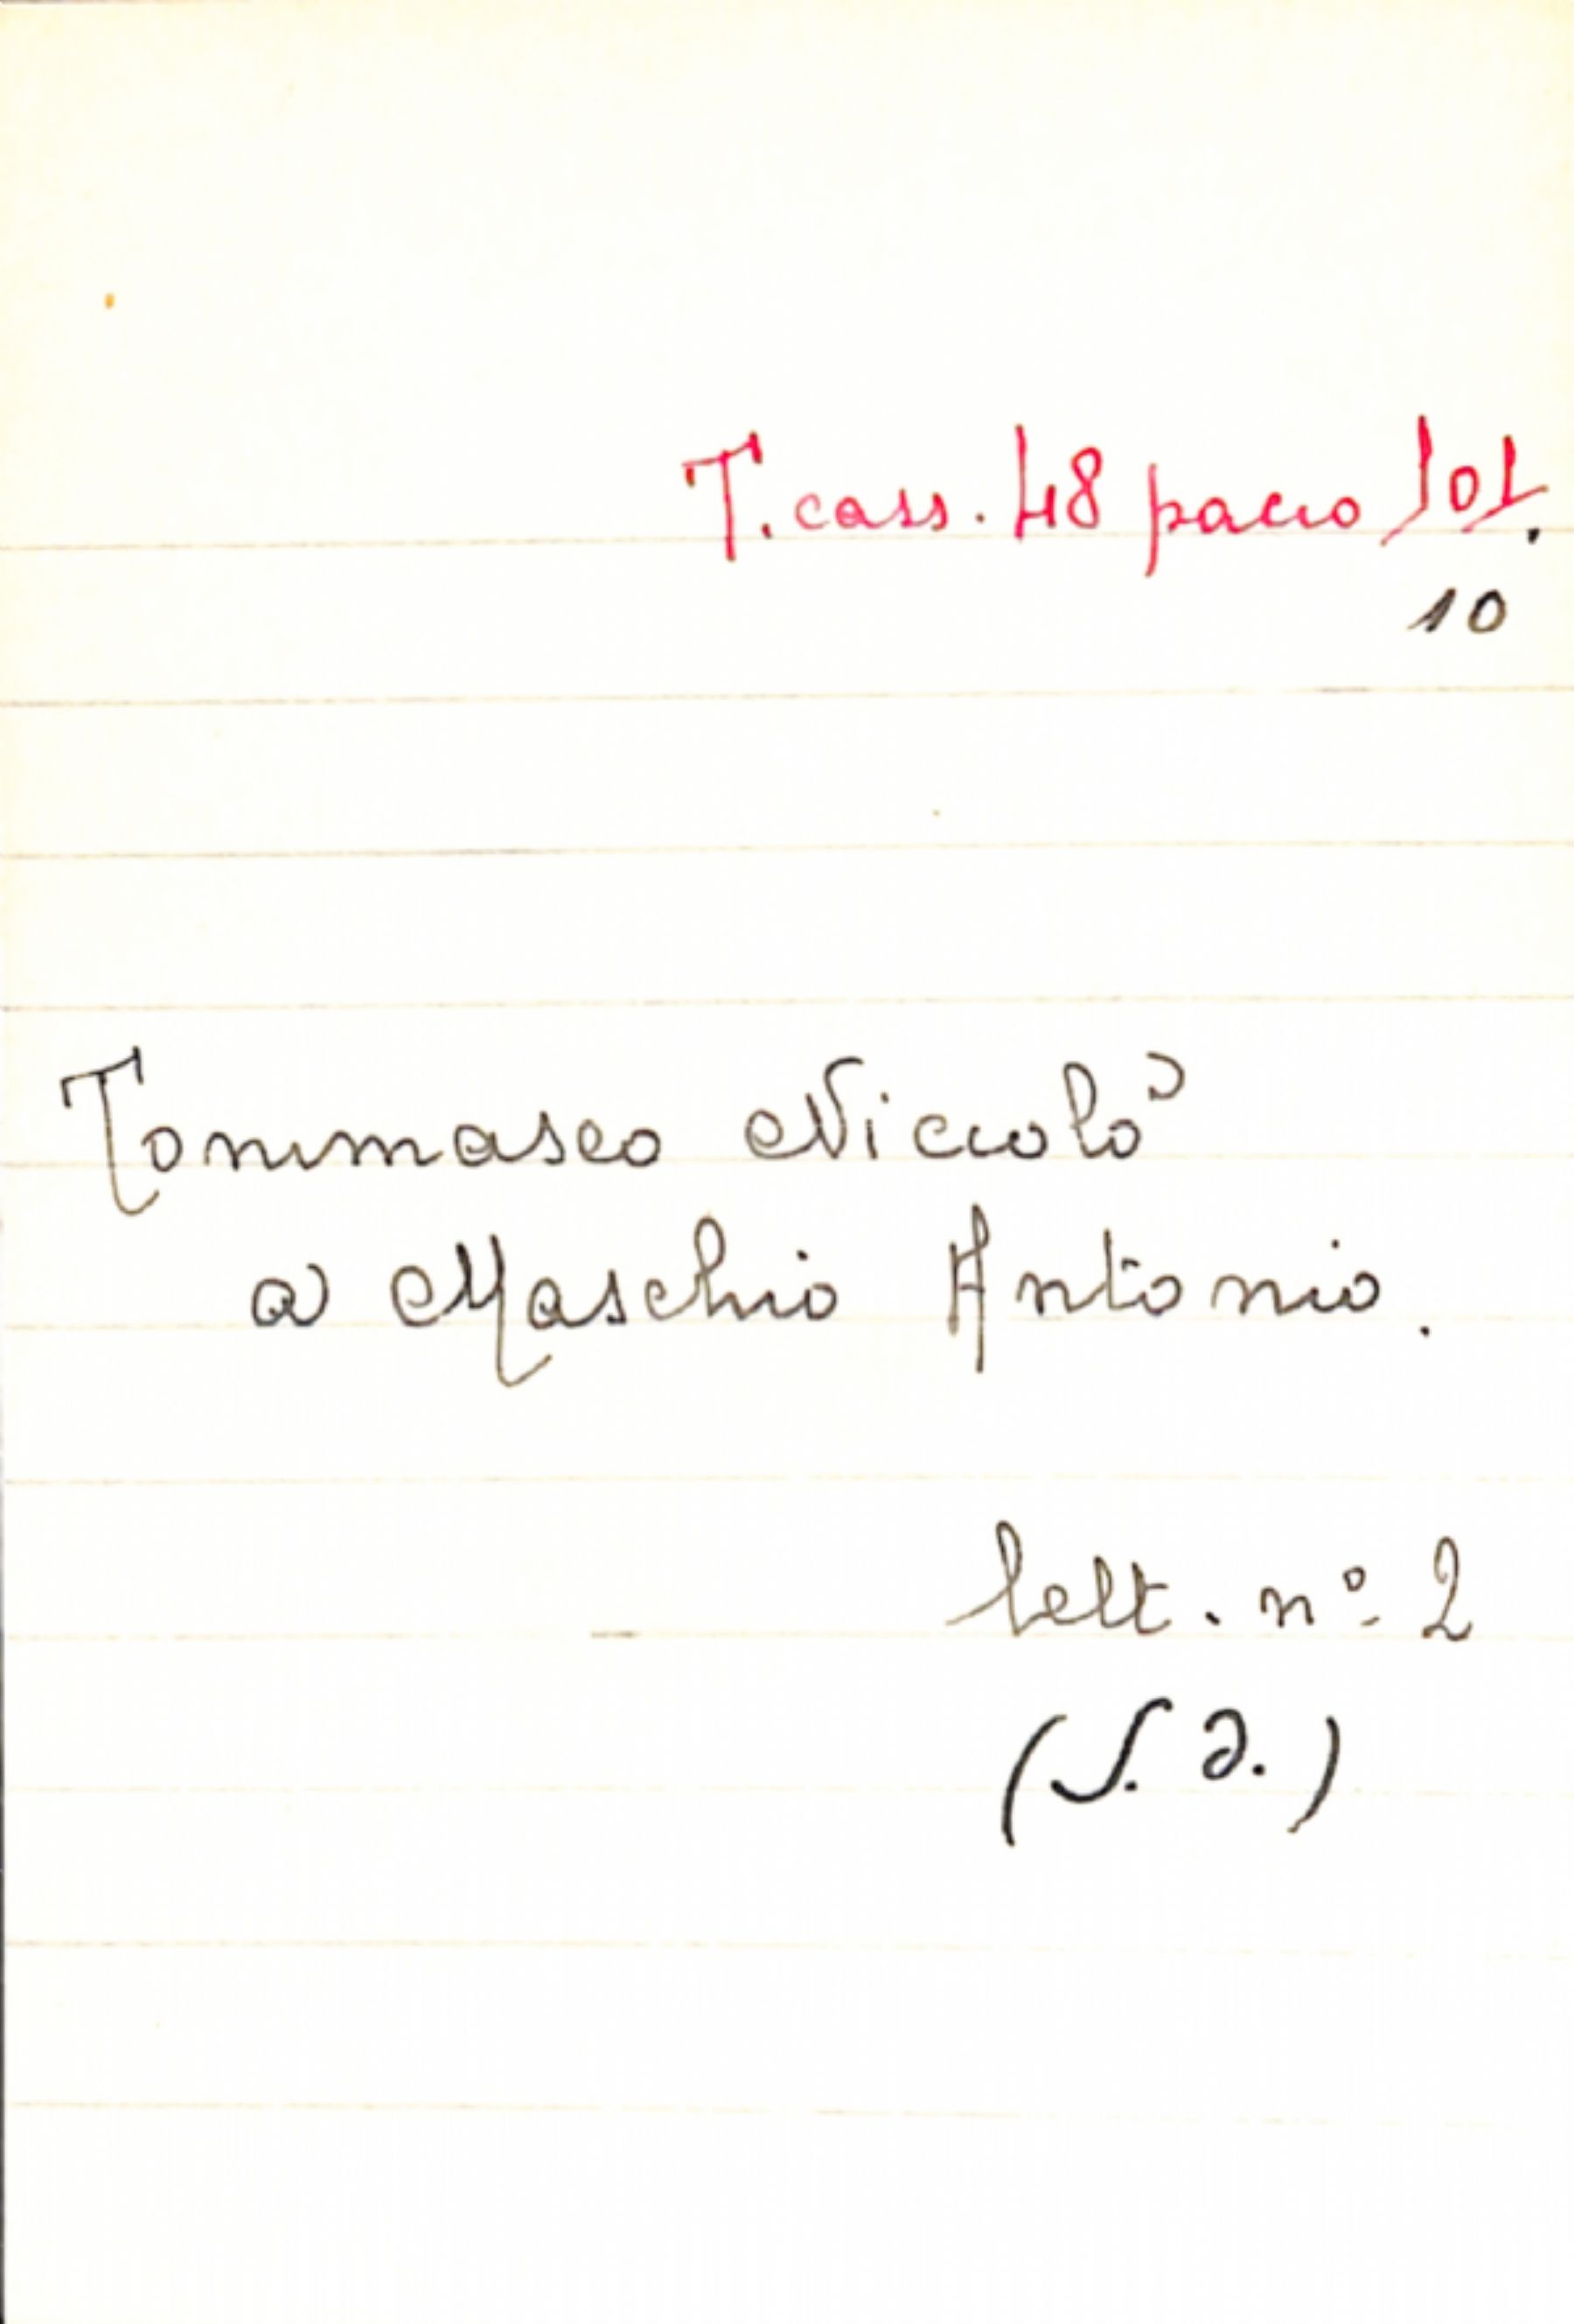 T. cass. 48 pacco 101.
10
Tommaseo Niccolò
a Maschio Antonio.
lett. nº 2
(S. d.)